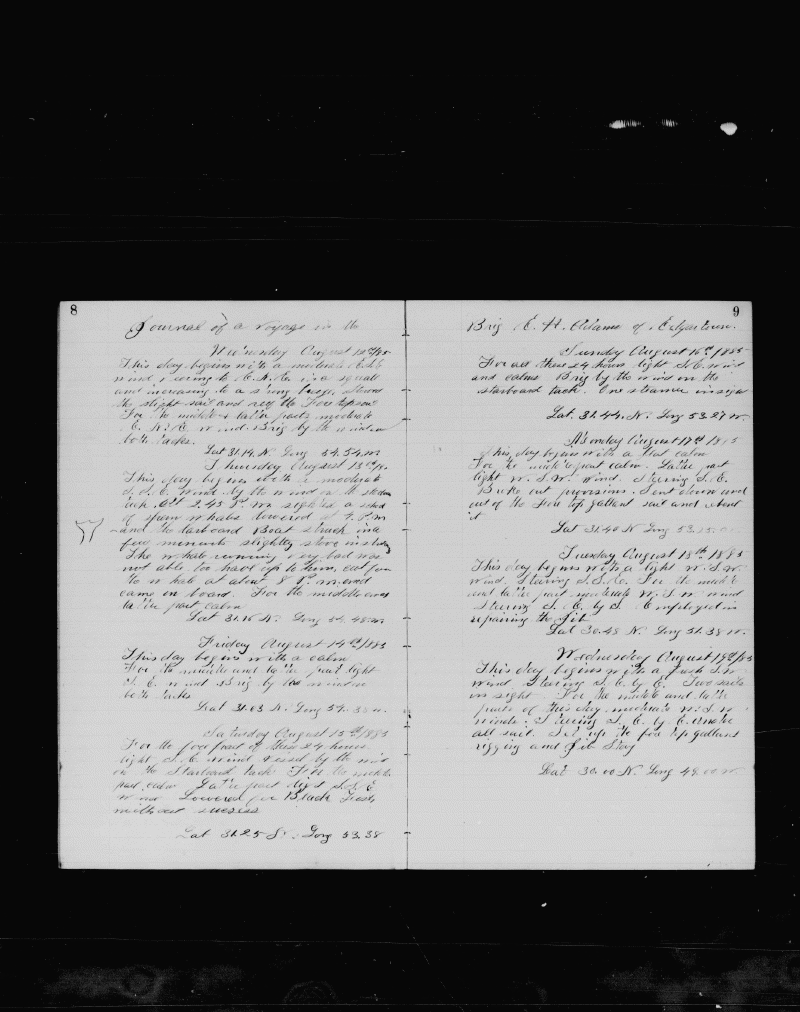 8
Journal of a Voyage in the
Wednesday August 12th/85
This day begins with a moderate E.S.E.
wind veering to E.N.E. in a squall
and increasing to a strong breeze,
the slight sail and reef the Foretopsail
For the middle & latter parts moderate
E.N.E. wind. Brig by the wind on
both tacks.
Lat 31.14 N. Long 54.54 W
Thursday August 13th/85
This day begins with a moderate
wind by the wind on the
tack. At 2.45 P.M. sighted a
of Sperm whales lowered at 4 P.M
and the larboard Boat struck in a
few moments slightly stove
The whale running very bad was
not able to haul up to him, cut from
the whale at about 8 P.M. and
came on board. For the middle and
latter part calm
Lat 31.16 N. Long 54.48 W
Friday August 14th/85
This day begins with a calm
For the middle and latter part light
S.E. wind Brig by the wind on
both tacks
Lat 31.03 N. Long 54.38 W
Saturday August 15th/85
For the fore part of these 24 hours
light S.E. wind by the wind
on the Starboard tack For the middle
part calm Latter part light S.S.E
wind Lowered for Black Fish
without success
Lat 31.25 N. Long 53.38
9
Brig E. H. Adams of Edgartown.
Sunday August 16th 1885
For all these 24 hours light S.E. wind
and calms Brig by the wind on the
starboard tack. One steamer in sight
Lat. 31.44. N. Long 53.27 W.
Monday August 17th 1885
This day begins with a flat calm
For the middle part calm. Latter part
light W.S.W. wind. Steering S.E.
Broke out provisions. Sent down and
out of the Fore top gallant sail and
it
Lat 31.40 N Long 53.25
Tuesday August 18th 1885
This day begins with a light W.S.W.
wind. Steering S.S.E. For the middle
and latter part moderate W.S.W. wind
Steering S.E. by S. Employed in
repairing the Jib
Lat 30.48 N. Long 51.38 W.
Wednesday August 19th/85
This day begins with a fresh S.W
wind Steering S.E. by E. Two sails
in sight For the middle and latter
parts of this day moderate W.S.W
winds. Steering S.E. by E. under
all sail. Set up the fore top gallant
rigging and Jib Stay
Lat 30.00 N. Long 49.00 W